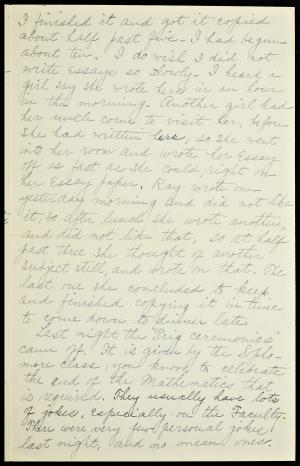 I finished it and got it copied
about half past five. I had begun
about ten. I do wish I did not
write essays so slowly. I heard a
girl say she wrote hers in an hour
in the morning. Another girl had
her uncle come to visit her, before
she had written hers, so she went
into her room and wrote her essay
off as fast as she could, right on
her essay paper. Ray wrote one
yesterday morning and did not like
it, so after lunch she wrote another,
and did not like that, so at half
past three she thought of another
subject still, and wrote on that. The
last one she concluded to keep
and finished copying it in time
to come down to dinner late.
Last night the "Trig ceremonies"
came off. It is given by the Sopho-
more class, you know, to celebrate
the end of the Mathematics that
is required. They usually have lots
of jokes, especially on the Faculty.
There were very few personal jokes
last night, and no mean ones.